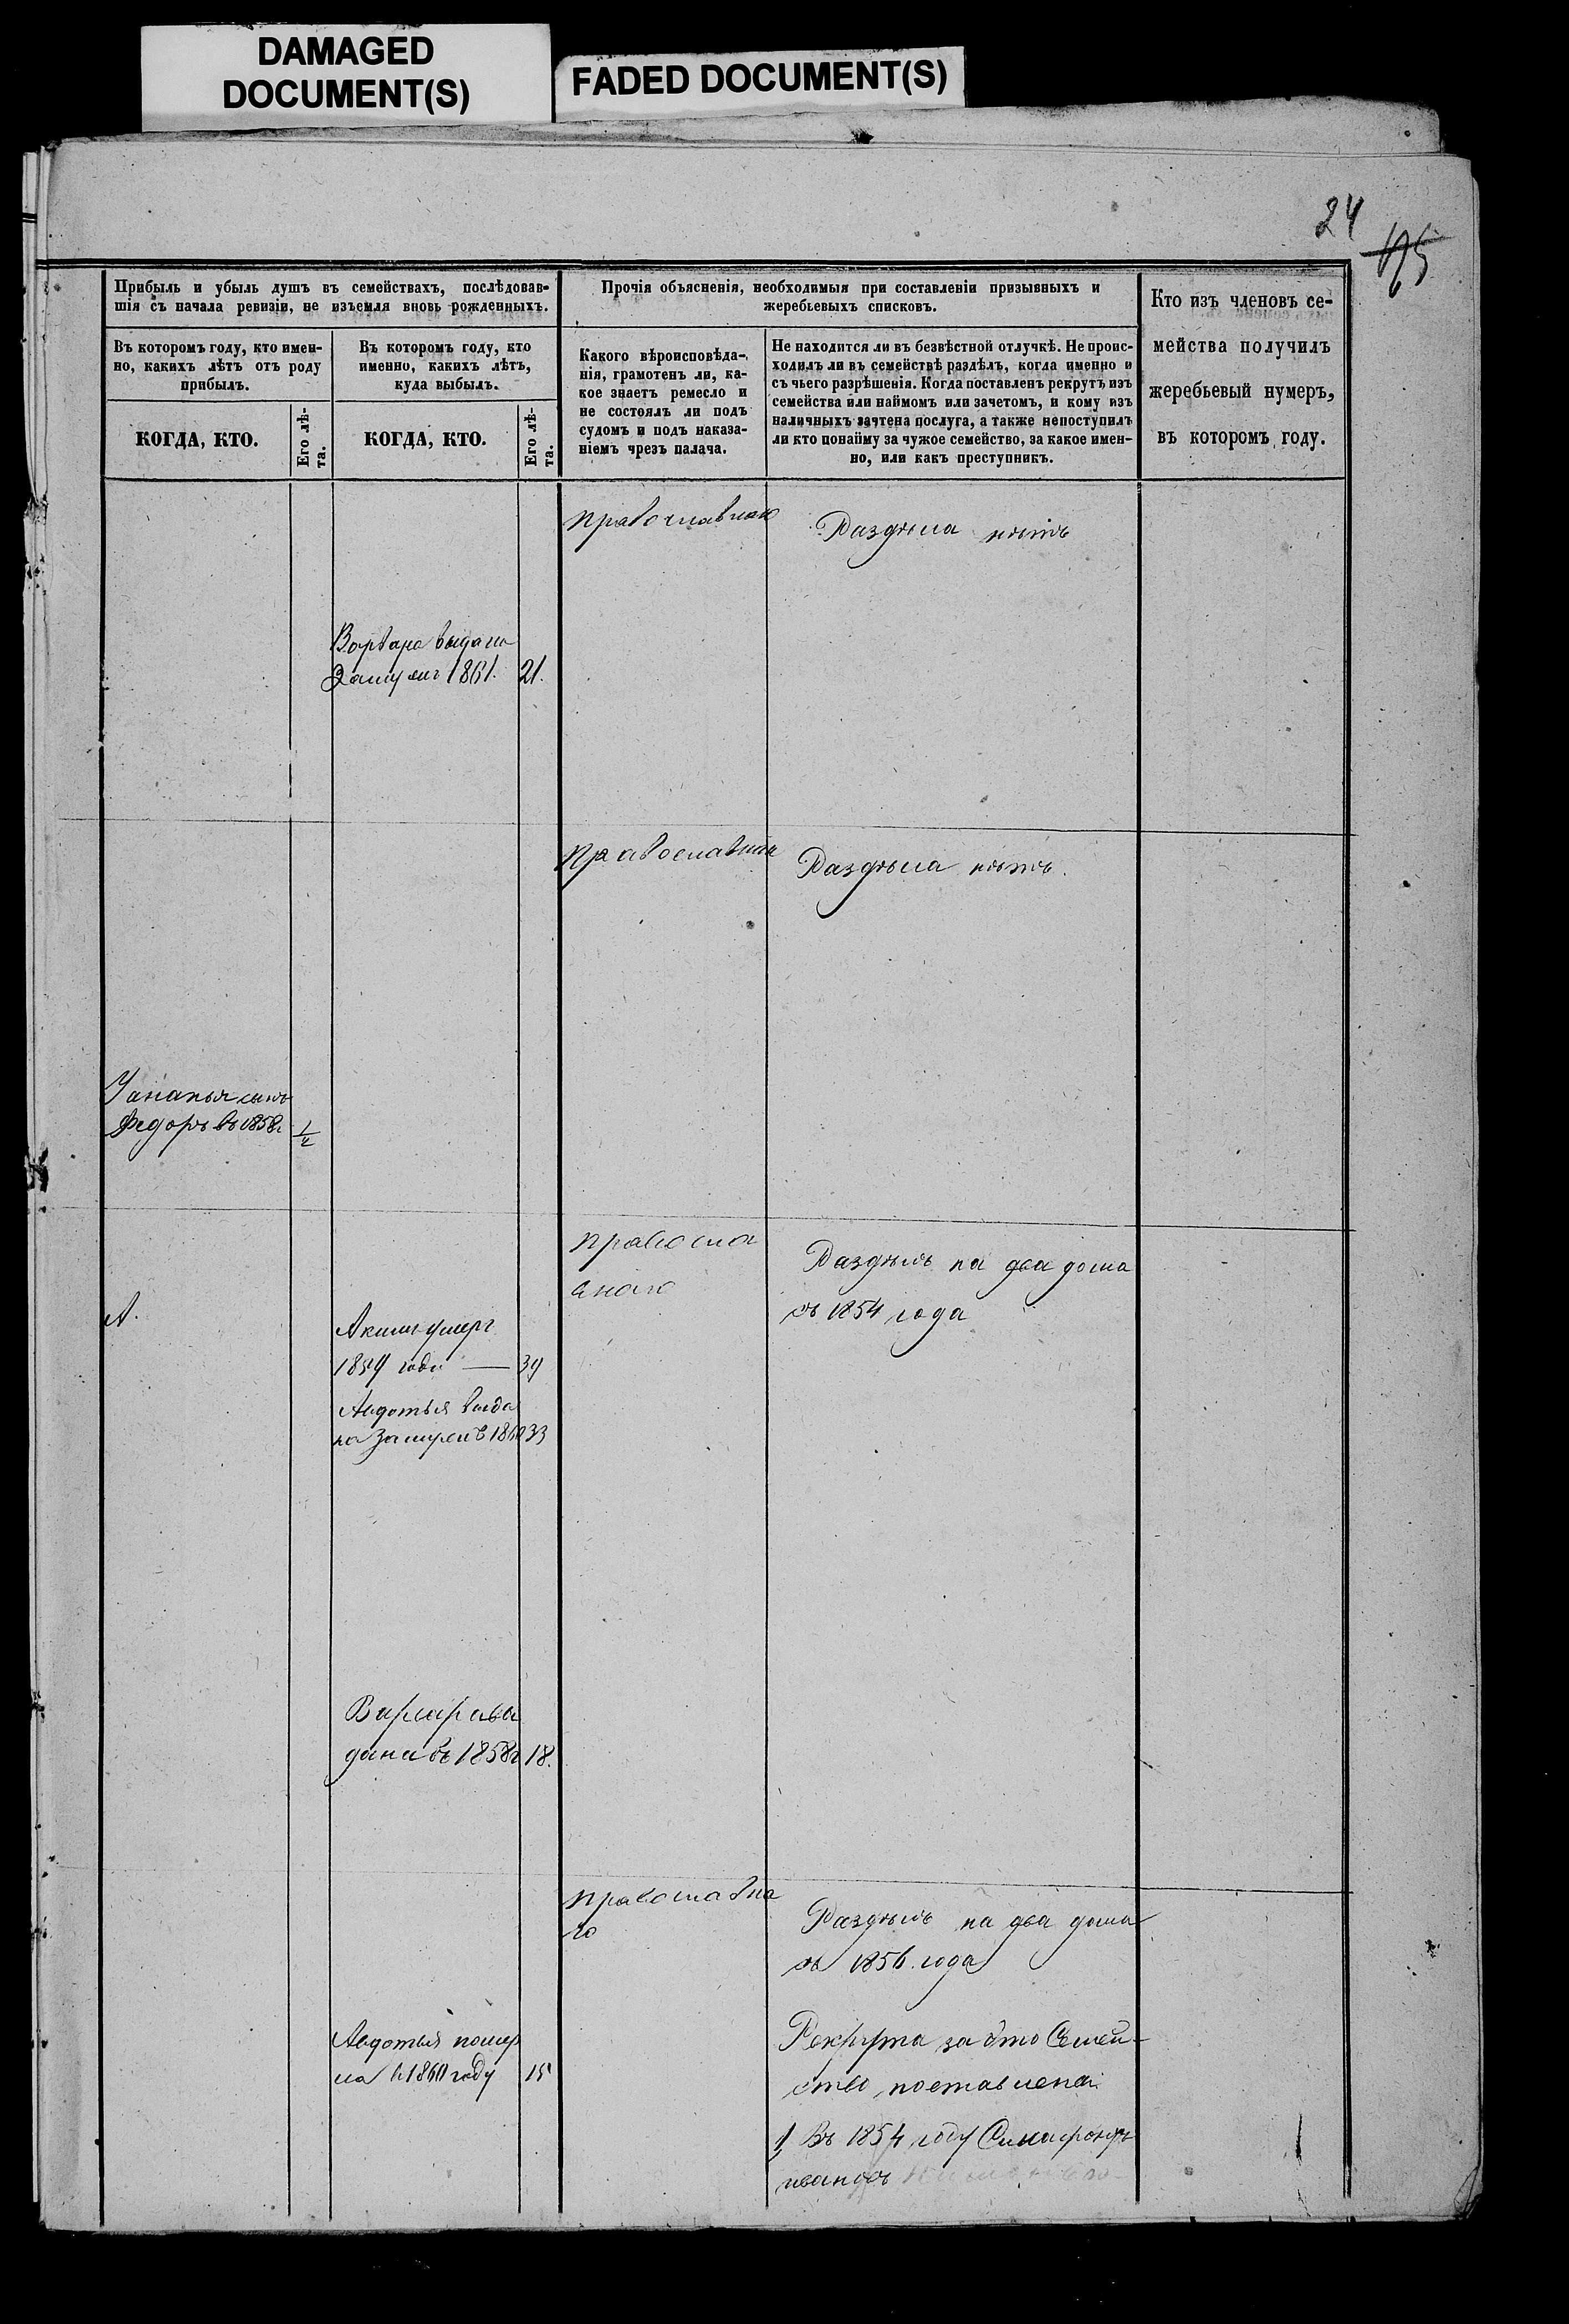 DAMAGED
DOCUMENT(S)
FADED DOCUMENT(S)
24
Прибыль и убыль душъ въ семействахъ, послѣдовав-
шія съ начала ревизіи, не изъемля вновь рожденныхъ.
Прочія объясненія, необходимыя при составленіи призывныхъ и
жеребьевыхъ списковъ.
Кто изъ членовъ се-
мейства получилъ
жеребьевый нумеръ,
въ которомъ году.
Въ которомъ году, кто имен-
но, какихъ лѣтъ отъ роду
прибылъ.
Въ которомъ году, кто
именно, какихъ лѣтъ,
куда выбылъ.
Какого вѣроисповѣда-
нія, грамотенъ ли, ка-
кое знаетъ ремесло и
не состоялъ ли подъ
судомъ и подъ наказа-
ніемъ чрезъ палача.
Не находится ли въ безвѣстной отлучкѣ. Не проис-
ходилъ ли въ семействѣ раздѣлъ, когда именно и
съ чьего разрѣшенія. Когда поставленъ рекрутъ изъ
семейства или наймомъ или зачетомъ, и кому изъ
наличныхъ зачтена послуга, а также непоступилъ
ли кто понайму за чужое семейство, за какое имен-
но, или какъ преступникъ.
КОГДА, КТО.
Его лѣ-
та.
КОГДА, КТО.
Его лѣ-
та.
православнаго
Раздѣла нѣтъ
Варвара выдана
Замужъ 1861. 21.
православнаго
Раздѣла нѣтъ.
сынъ
Федоръ въ 1858г
православ
наго
Раздѣлъ на два дома
съ 1854 года
А.
Акимъ умеръ
года — 39
Авдотья выда
на Замужъ в 33
дана въ 1858г 18.
православна
го
Раздѣлъ на два дома
съ 1856. года
Авдотья помер
ла в 1860 году 15
Рекрута за это Семей-
ство поставлена
1, Въ 1854 году
ивановъ